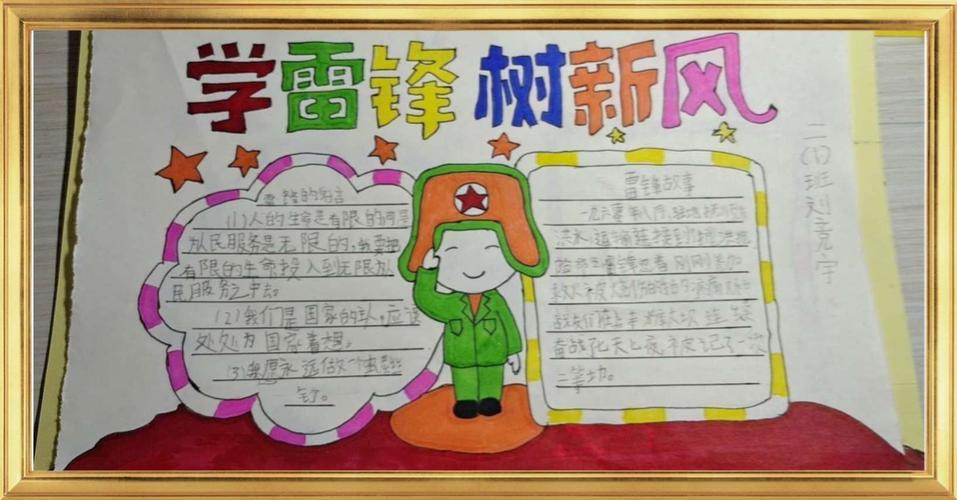 学雷锋 树新风
二(1)班刘竞宇
雷锋的名言
(1)人的生命是有限的可是
为人民服务是无限的,我要把
有限的生命投入到无限为人
民服务之中去。
(2)我们是国家的主人,应该
处处为国家着想。
(3)我愿永远做一个螺丝
钉。
雷锋故事
一九六零年八月,驻地
洪水,运输连接到抗洪抢
险命 雷锋忍着刚刚参加
救火 被烧伤的
战友们在上寺 水库大坝连 续
奋战了七天七夜,被记了一次
二等功。